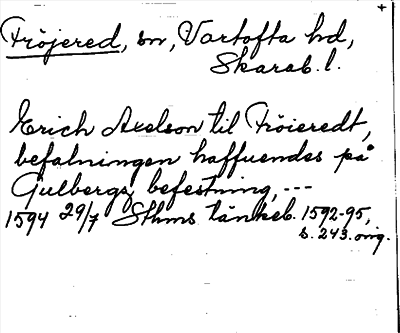 +
Fröjered, sn, Vartofta hd,
Skarab. l.
Erich Axelson til Fröieredt,
befalningen haffuendes på
Gulbergz befestning, ---
1594 29/7 Sthms tänkeb. 1592-95,
s. 243. orig.